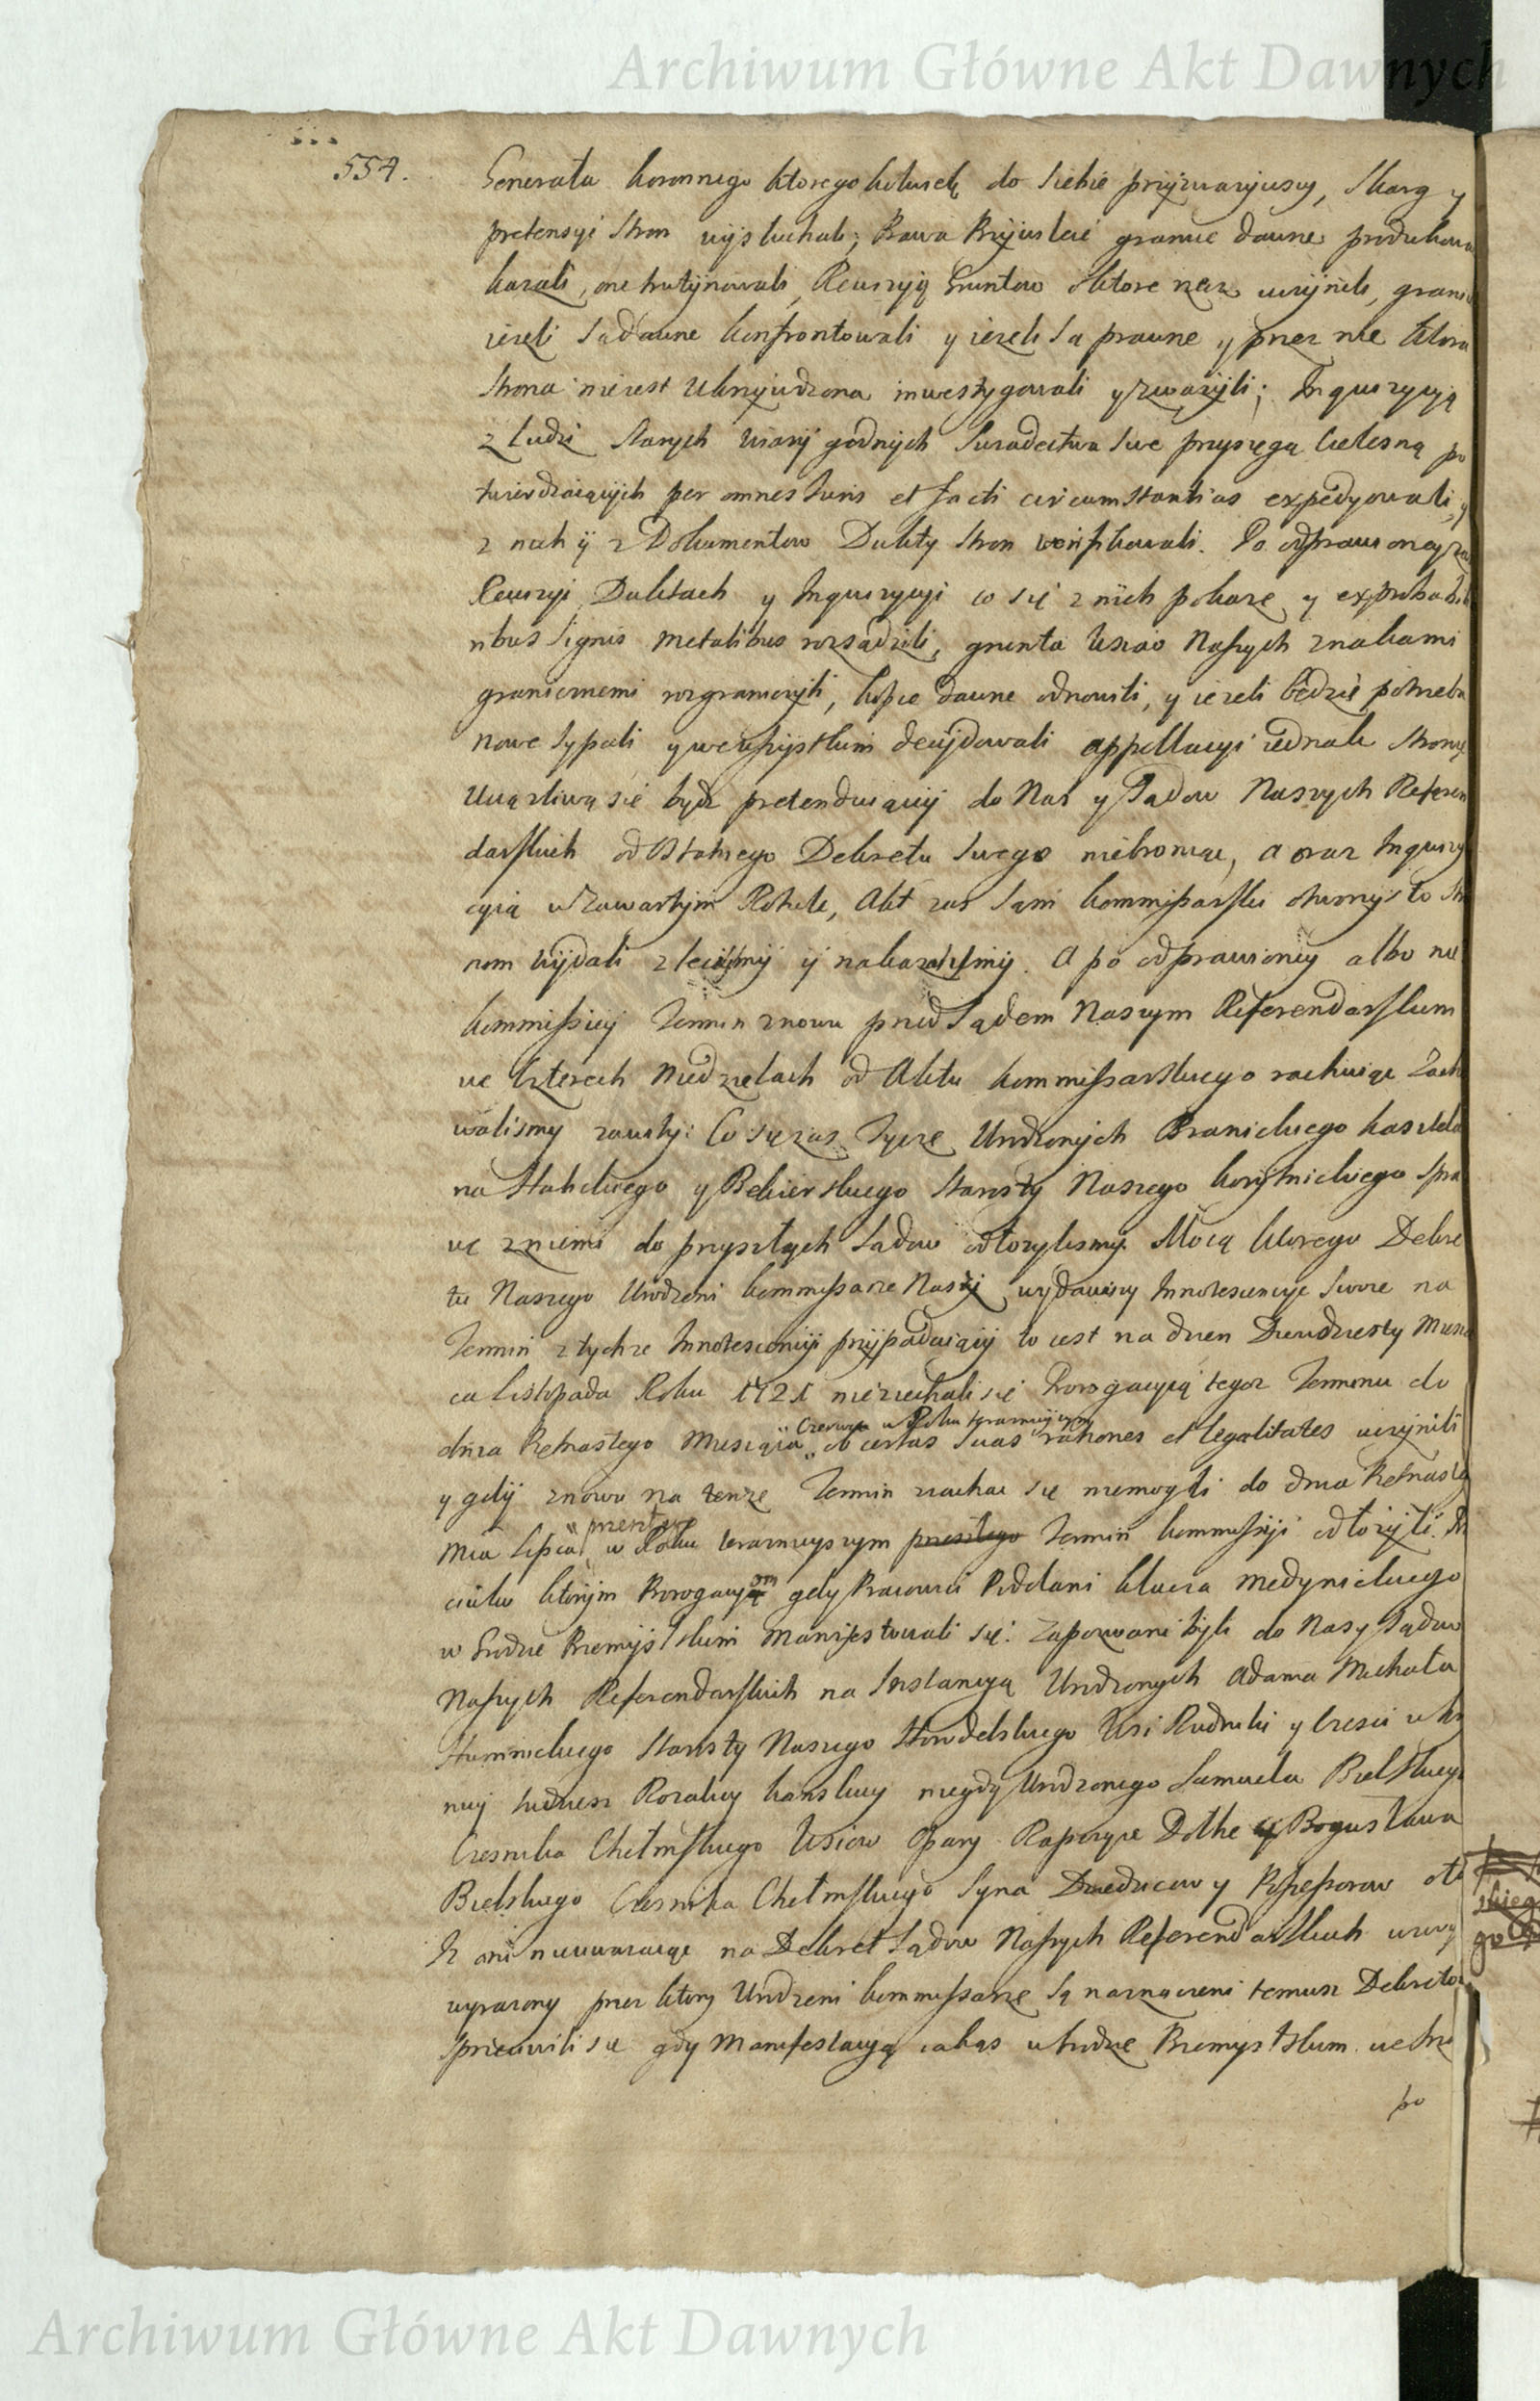 Archiwum Główne Akt Dawnych
554.
Generała koronnego ktoregokolwiek do siebie przyzwawszy, skarg y
pretensyi stron wysłuchali; Prawa Przywileie granic dawne produkowa
kazali, one trutynowali, Rewizyą Gruntow o ktore rzecz uczynili, grani
ieżeli są dawne konfrontowali y ieżeli są prawne y przez nie ktora
strona nie iest ukrzywdzona inwestygowali y zważyli; Inquizycyą
z ludzi starych wiary godnych swiadectwa swe przysięgą cielesną po
twierdzaiących per omnes Juris et facti circumstantias expedyowali, y
z nich y z Dokumentow Dukty stron weryfikowali. Po odprawioney za
Rewizyi Duktach y Inquizycyi co się z nich pokaże y ex probabili
nibus signis metalibus rozsądzili, grunta wsiow Naszych znakami
granicznemi rozgraniczyli, kopce dawne odnowili, y ieżeli będzie potrzeba
nowe sypali y we wszystkim decydowali appellacyi iednak stronie
uciążliwą się bydz pretenduiącey do Nas y Sądow Naszych Referen
darskich od ostatniego Dekretu swego niebroniąc, a oraz Inquizy
cyią w zawartym Rotule, Akt zas sam kommissarski otworzysto str
nom wydali zlecilismy y nakazalismy. A po odprawioney albo nie
kommissiey Termin znowu przed Sądem Naszym Referendarskim
we czterech Niedzielach od Aktu kommissarskiego rachuiąc Zach
walismy zawity: Co się zas tycze Urodzonych Branickiego kasztela
na Halickiego y Bekierskiego Starosty Naszego korytnickiego spra
wę z niemi do przyszłych Sądow odłożylismy. Mocą ktorego Dekre
tu Naszego Urodzeni kommissarze Naszy wydawszy Innotescencye swoie na
Termin z tychże Innotescencyi przypadaiący to iest na dzien Dwudziesty Miesią
ca Listopada Roku 1721 niezjechali się Prorogacyią tegoz Terminu do
Czerwca w Roku teraznieyszym
dnia Piętnastego Miesiąca „ ob certas suas rationes et legalitates uczynili
y gdy znowu na tenze Termin ziachac się niemogli do dnia Piętnaste
„ przeszłego
Mca Lipca „ w Roku teraznieyszym przeszłego Termin kommissyi odłożyli. Prze
ciwko ktorym Prorogacyom gdy Pracowici Poddani klucza Medynickiego
w Grodzie Przemyslskim manifestowali się. Zapozwani byli do Nas y Sądow
Naszych Referendarskich na Instancyą Urodzonych Adama Michała
Humnickiego Starosty Naszego Horodelskiego Wsi Rudniki y Części
niey tudziesz Rozaliey kanskiey niegdy Urodzonego Samuela Bielskiego
Czesnika Chełmskiego Wsiow Opary Raporyce Dołhe y Bogusława
Bielskiego Czesnika Chełmskiego Syna Dziedzicow y Possessorow oto
Iz oni nieuwazaiąc na Dekret Sądow Naszych Referendarskich
wyrażony przez ktory Urodzeni kommissarze są naznaczeni temusz Dekretowi
sprzeciwili się gdy Manifestacyą iakąs w Grodzie Przemyslskim
po
skieg
go
Archiwum Główne Akt Dawnych